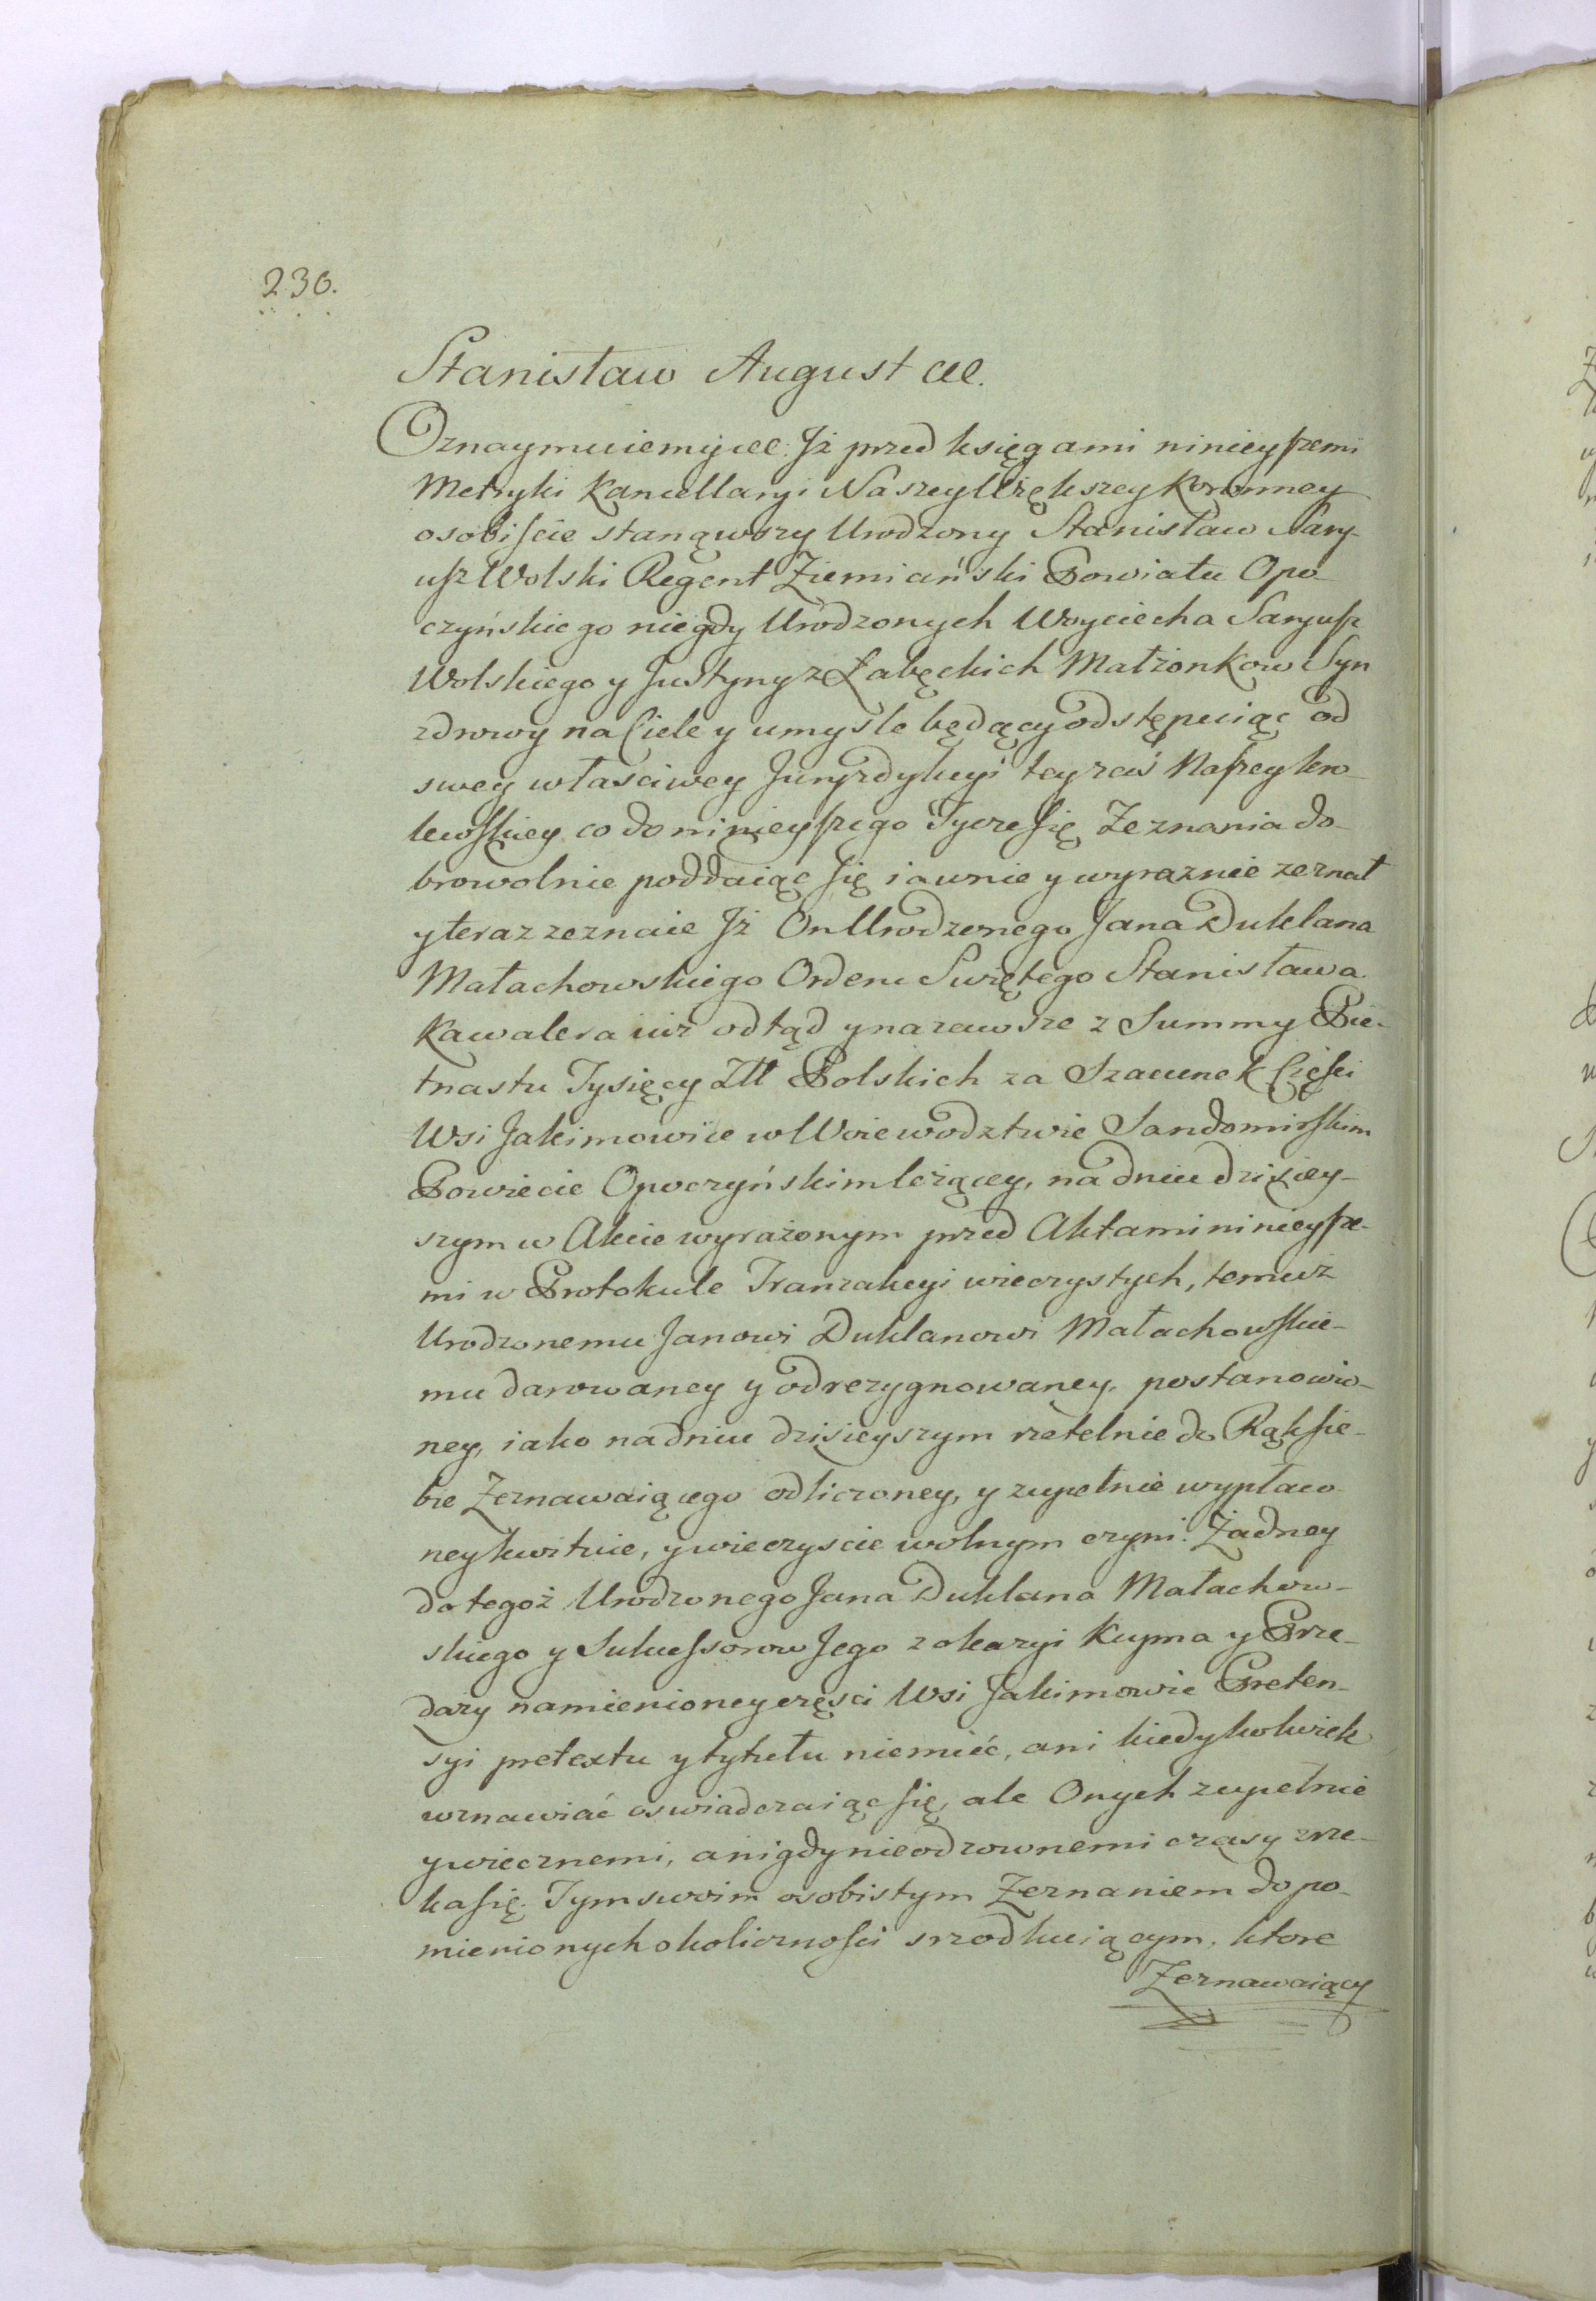 230.
Stanisław August etc.
Oznaymuiemy etc. Jż przed księgami ninieyszemi
Metryki Kancellaryi Naszey Większey Koronney
osobiscie stanąwszy Urodzony Stanisław Sary-
usz Wolski Regent Ziemiański Powiatu Opo-
czyńskiego niegdy Urodzonych Woyciecha Saryusz
Wolskiego y Justyny z Łabęckich Małżonkow Syn
zdrowy na Ciele y umysle będący odstępuiąc od
swey własciwey Juryzdykcyi teyzaś Naszey kro-
lewskiey co do ninieyszego Tycze się Zeznania do-
browolnie poddaiąc się iawnie y wyraznie zeznał
y teraz zeznaie Jż On Urodzonego Jana Duklana
Małachowskiego Orderu Swiętego Stanisława
Kawalera iuż odtąd y nazawsze z Summy Pie-
tnastu Tysięcy Złł Polskich za Szacunek Częsci
Wsi Jakimowice w Woiewodztwie Sandomirskim
Powiecie Opoczyńskim leżącey, na dniu dzisiey-
szym w Akcie wyrażonym przed Aktami ninieysze-
mi w Protokule Tranzakcyi wieczystych, temuż
Urodzonemu Janowi Duklanowi Małachowskie-
mu darowaney y odrezygnowaney, postanowio-
ney, iako na dniu dzisieyszym rzetelnie do Rąk sie-
bie Zeznawaiącego odliczoney, y zupełnie wypłaco-
ney kwituie, y wieczyscie wolnym czyni. Żadney
do tegoż Urodzonego Jana Duklana Małachow-
skiego y Sukcessorow Jego z okazyi Kupna y Prze-
daży namienioney części Wsi Jakimowic Preten-
syi pretextu y tytułu niemieć, ani kiedykolwiek
wznawiać oswiadczaiąc się, ale Onych zupełnie
y wiecznemi, a nigdy nieodzownemi czasy zrze-
ka się. Tym swoim osobistym Zeznaniem do po-
mienionych okolicznosci srzodkuiącym, ktore
Zeznawaiący